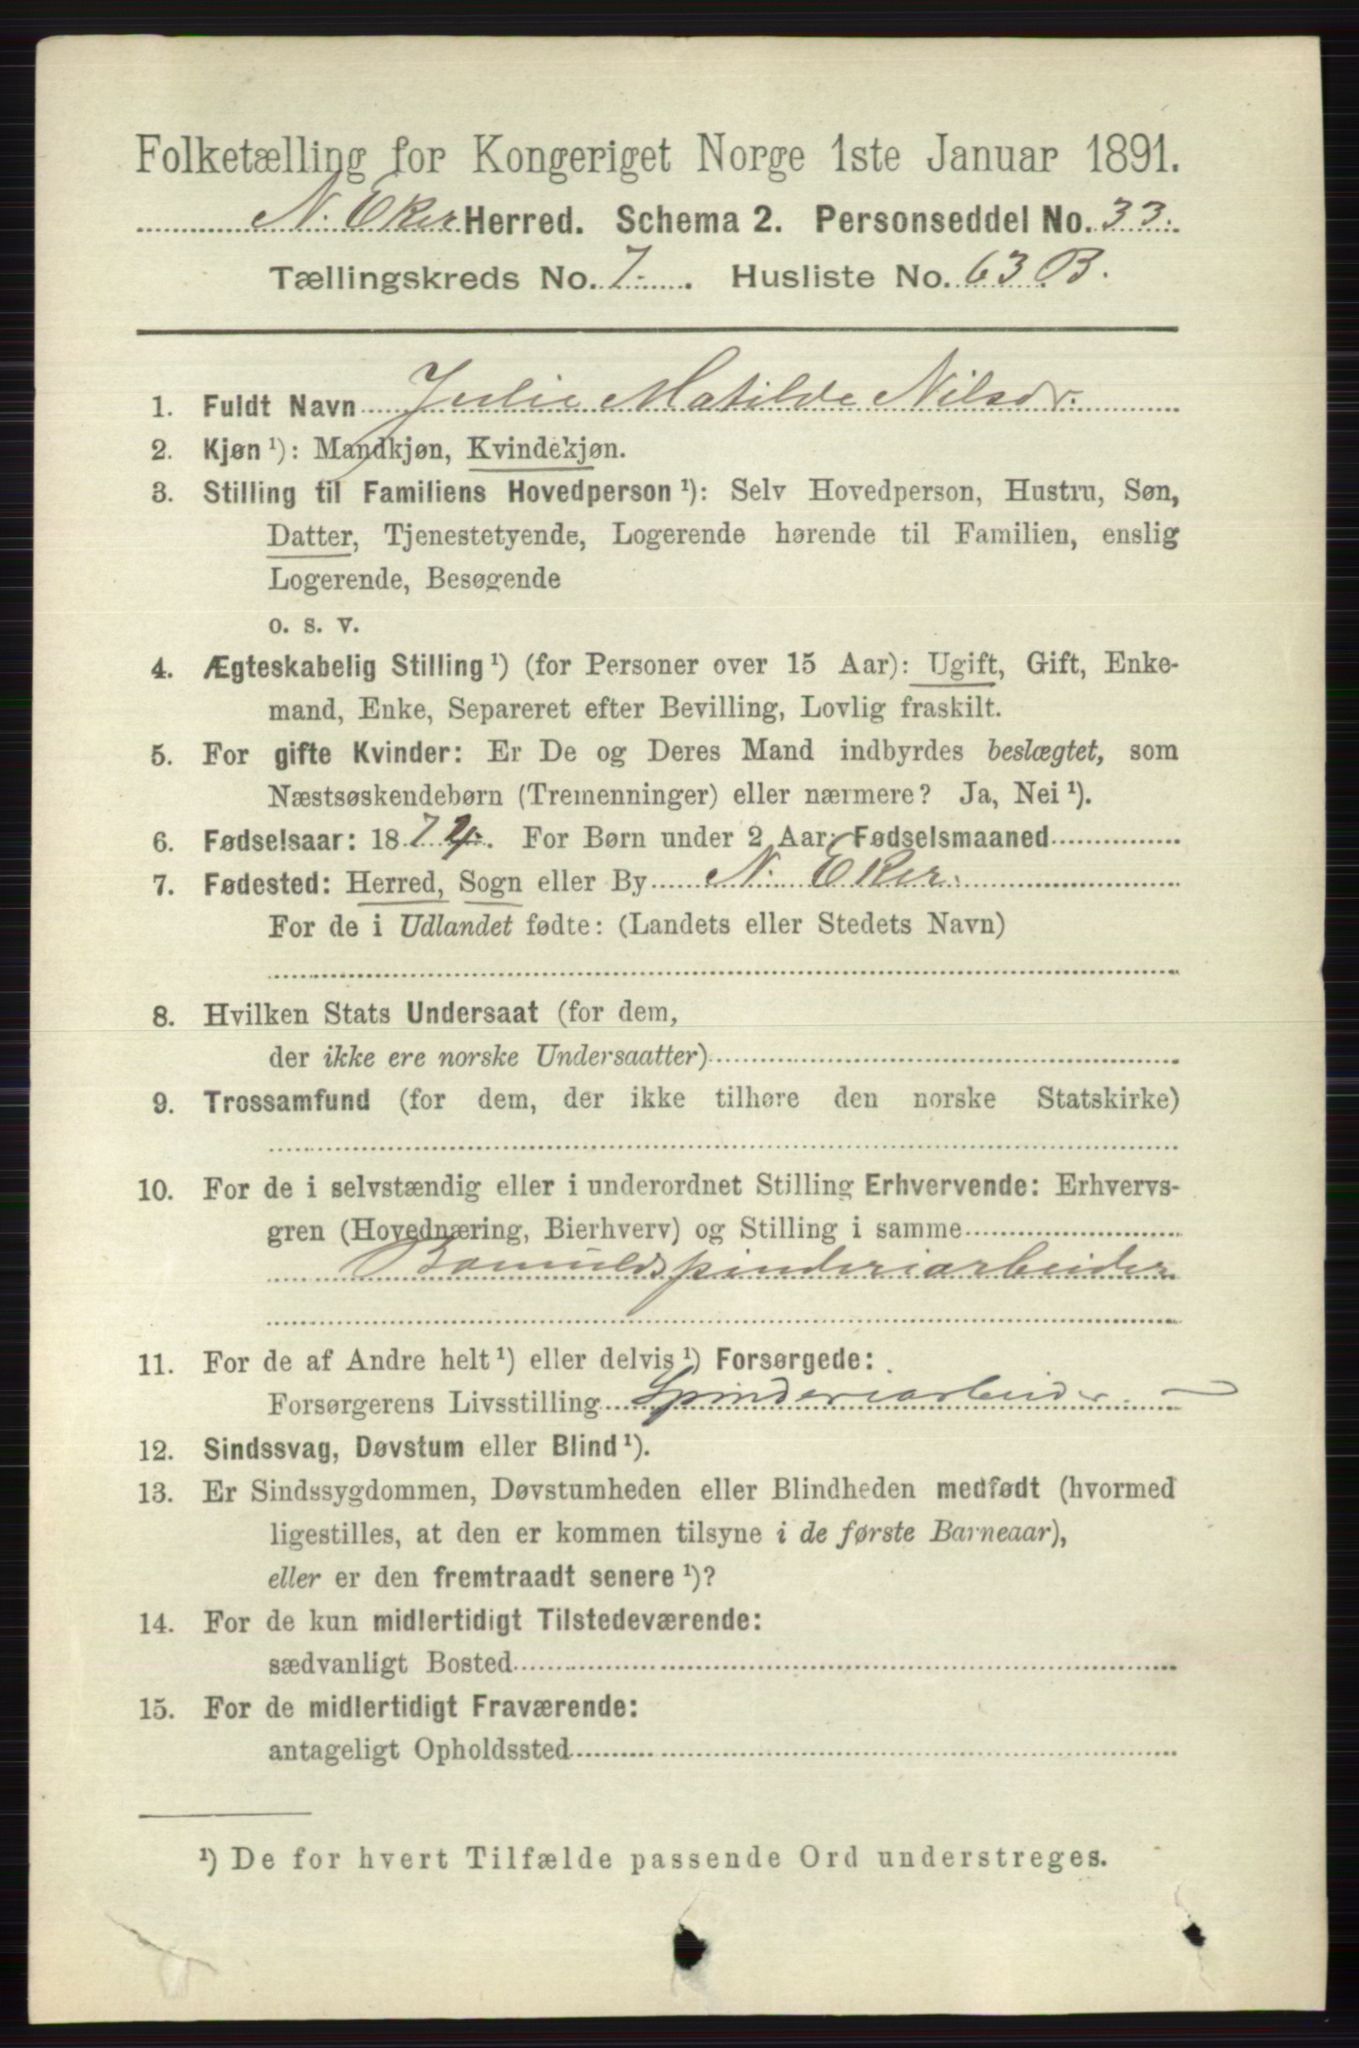 Folketælling for Kongeriget Norge 1ste Januar 1891.
N. Eker Herred. Schema 2. Personseddel No. 33.
Tællingskreds No. 7. Husliste No. 63 B.
1. Fuldt Navn Julie Matilde Nilsdr.
2. Kjøn ¹): Mandkjøn, Kvindekjøn.
3. Stilling til Familiens Hovedperson ¹): Selv Hovedperson, Hustru, Søn,
Datter, Tjenestetyende, Logerende hørende til Familien, enslig
Logerende, Besøgende
o. s. v.
4. Ægteskabelig Stilling ¹) (for Personer over 15 Aar): Ugift, Gift, Enke-
mand, Enke, Separeret efter Bevilling, Lovlig fraskilt.
5. For gifte Kvinder: Er De og Deres Mand indbyrdes beslægtet, som
Næstsøskendebørn (Tremenninger) eller nærmere? Ja, Nei ¹).
6. Fødselsaar: 1874. For Børn under 2 Aar: Fødselsmaaned
7. Fødested: Herred, Sogn eller By N. Eker.
For de i Udlandet fødte: (Landets eller Stedets Navn)
8. Hvilken Stats Undersaat (for dem,
der ikke ere norske Undersaatter)
9. Trossamfund (for dem, der ikke tilhøre den norske Statskirke)
10. For de i selvstændig eller i underordnet Stilling Erhvervende: Erhvervs-
gren (Hovednæring, Bierhverv) og Stilling i samme
Bomuldspinderiarbeider
11. For de af Andre helt ¹) eller delvis ¹) Forsørgede:
Forsørgerens Livsstilling Spinderiarbeider
12. Sindssvag, Døvstum eller Blind ¹).
13. Er Sindssygdommen, Døvstumheden eller Blindheden medfødt (hvormed
ligestilles, at den er kommen tilsyne i de første Barneaar),
eller er den fremtraadt senere ¹)?
14. For de kun midlertidigt Tilstedeværende:
sædvanligt Bosted
15. For de midlertidigt Fraværende:
antageligt Opholdssted
¹) De for hvert Tilfælde passende Ord understreges.